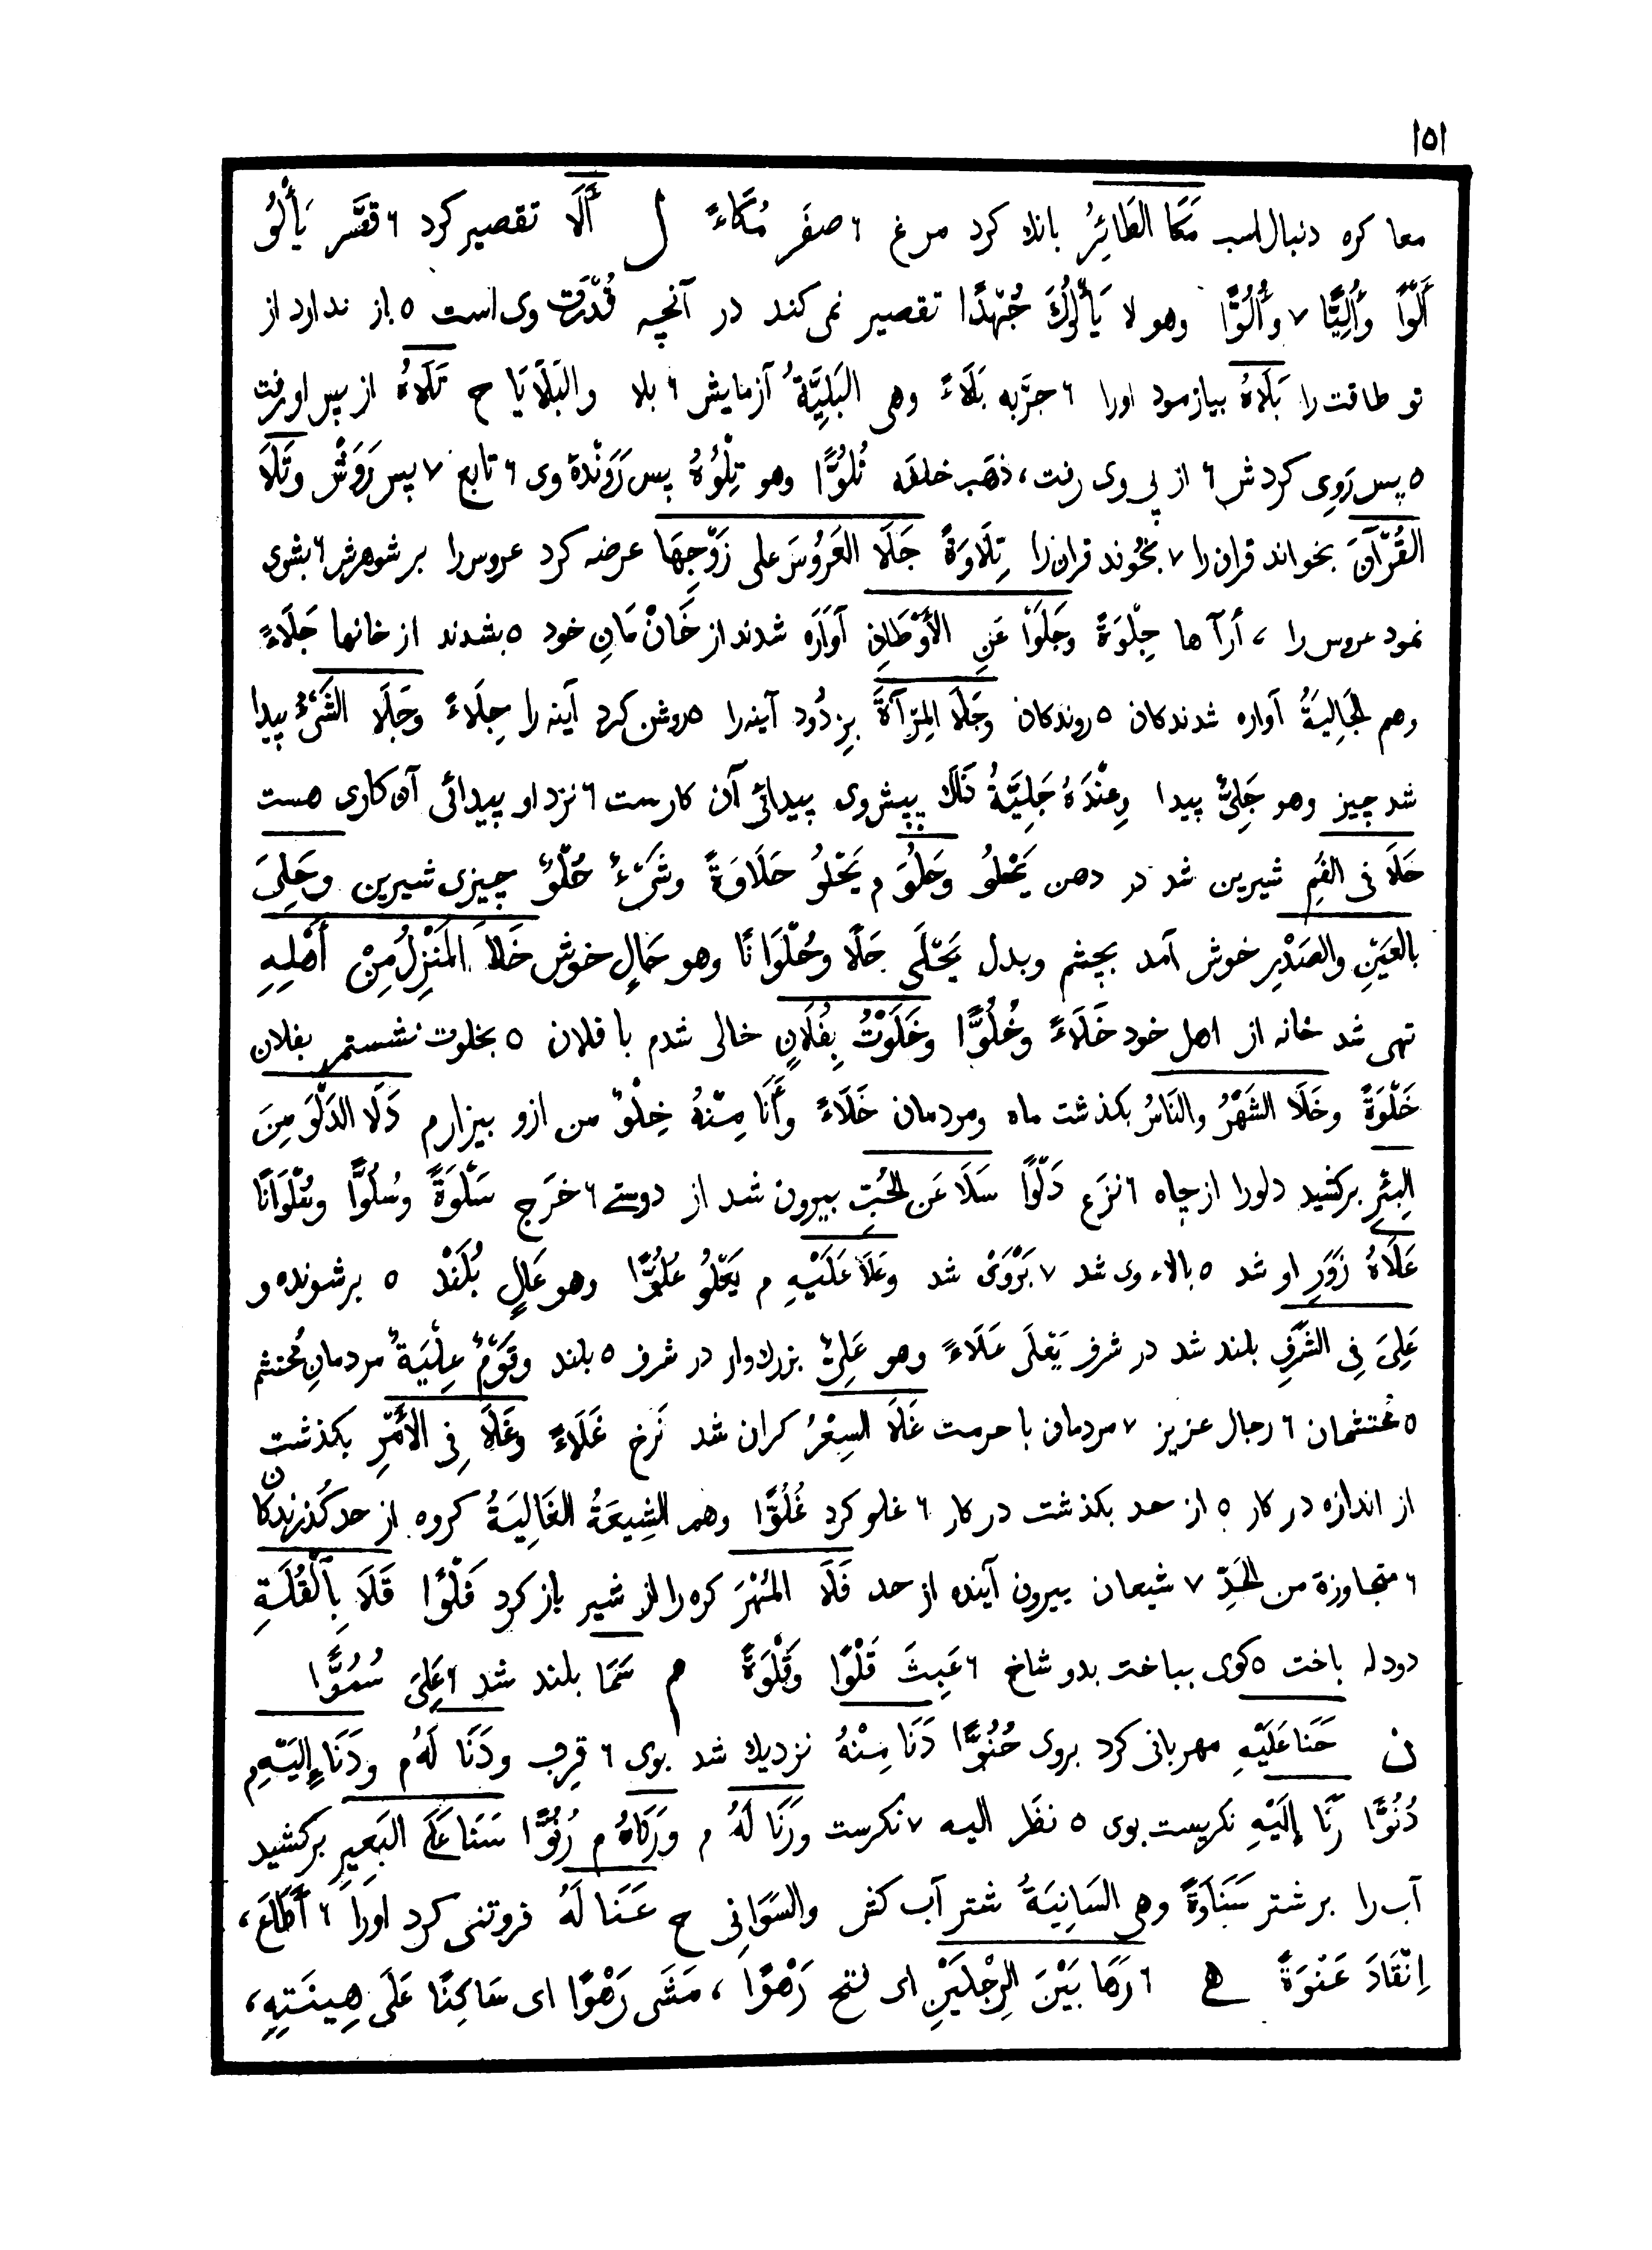 ١٥١
معا كره دنبال اسب مَكَا الطَائِرُ بانك كرد مرغ ٦ صفَر مُكَاءً ل أَلَا تقصير كرد ٦ قصَّر يَأْلُو
أَلْوًا وَأُلِيًّا ٧ وَأُلُوًّا وهو لا يَأْلُوكَ جُهْدًا تقصير نمى كند در آنچه قُدْرَت وى است ٥ باز ندارد از
تو طاقت را بَلَاهُ بيازمود اورا ٦ جرَّبه بَلَاءً وهى البَلِيَّةُ آزمايش ٦ بلا والبَلَايَا ح تَلَاهُ از پس او رفت
٥ پس رَوِى كردش ٦ از پى وى رفت، ذهَب خلفه تُلُوًّا وهو تِلْوُهُ پس رَوَنْدهٔ وى ٦ تابع ٧ پس رَوَشْ وتَلَا
القُرْآنَ بخواند قران را ٧ بخُوند قران را تِلَاوَةً جَلَا العَرُوسَ على زَوْجِهَا عرضه كرد عروس را بر شوهرش ٦ بشوى
نمود عروس را ، أرآ ها جِلْوَةً وجَلَوْا عَنِ الأَوْطَانِ آوَارَه شدند از خَانْ مَانِ خود ٥ بشدند از خانها جَلَاءً
وهم الجَالِيَةُ آواره شدندكان ٥ روندكان وجَلَا المِرْآةَ بزدُود آينه را ٥ روشن كرد آينه را جِلَاءً وجَلَا الشَىْءُ پيدا
شد چيز وهو جَلِىٌّ پيدا وعِنْدَهُ جَلِيَّةُ ذلك پيش وى پيدائى آن كارست ٦ نزد او پيدائى آن كارى هست
حَلَا فى الفَمِ شيرين شد در دهن يَحْلُو وحَلُوَ م يَحْلُو حَلَاوَةً وشَىْءٌ حُلْوٌ چيزى شيرين وحَلِىَ
بالعَيْنِ والصَدْرِ خوش آمد بچشم وبدل يَحْلَى حَلًا وحُلْوَانًا وهو حَالٍ خوش خَلَا المَنْزِلُ مِنْ أَهْلِهِ
تهى شد خانه از اهل خود خَلَاءً وخُلُوًّا وخَلَوْتُ بِفُلَانٍ خالى شدم با فلان ٥ بخلوت نشستم بفلان
خَلْوَةً وخَلَا الشَهْرُ والنَاسُ بكذشت ماه ومردمان خَلَاءً وأَنَا مِنْهُ خِلْوٌ من ازو بيزارم دَلَا الدَلْوَ مِنَ
البِئْرِ بركشيد دلورا از چاه ٦ نزَع دَلْوًا سَلَا عَن الحُبِّ بيرون شد از دوستى ٦ خرَج سَلْوَةً وسُلُوًّا وسُلْوَانًا
عَلَاهُ زَوَرِ او شد ٥ بالاء وى شد ٧ بَرْوَىْ شد وعَلَا عَلَيْهِ م يَعْلُو عُلُوًّا وهو عَالٍ بُلَنْد ٥ برشونده و
عَلِىَ فِى الشَرَفِ بلند شد در شرف يَعْلَى عَلَاءً وهو عَلِىٌّ بزرك وار در شرف ٥ بلند وقَوْمٌ عِلْيَةٌ مردمانِ مُحتشم
٥ محتشمان ٦ رجال عزيز ٧ مردمان با حرمت غَلَا السِعْرُ كران شد نَرخ غَلَاءً وغَلَا فِى الأَمْرِ بكذشت
از اندازه در كار ٥ از حد بكذشت در كار ٦ غلو كرد غُلُوًّا وهم الشِيعَةُ الغَالِيَةُ كروه از حد كُذرندكان
٦ متجاوزة من الحَدِّ ٧ شيعان بيرون آينده از حد فَلَا المُهْرَ كره را از شير باز كرد فَلْوًا قَلَا بِالْقُلَةِ
دودله باخت ٥ كوى بباخت بدو شاخ ٦ عَبِثَ قَلْوًا وقَلْوَةً م سَمَا بلند شد ٦ عَلِىَ سُمُوًّا
ن حَنَا عَلَيْهِ مهربانى كرد بروى حُنُوًّا دَنَا مِنْهُ نزديك شد بوى ٦ قرِب ودَنَا لَهُ م ودَنَا إِلَيْهِ م
دُنُوًّا رَنَا إِلَيْهِ نكريست بوى ٥ نظَر اليه ٧ نكرست ورَنَا لَهُ م ورَنَاهُ م رُنُوًّا سَنَا عَلَى البَعِيرِ بركشيد
آب را بر شتر سَنَاوَةً وهى السَانِيَةُ شتر آب كش والسَوَانِى ح عَنَا لَهُ فروتنى كرد اورا ٦ أَطَاعَ،
اِنْقَادَ عَنْوَةً ه ٦ رَهَا بَيْنَ الرِجْلَيْنِ اى فتح رَهْوًا ، مَشَى رَهْوًا اى سَاكِنًا عَلَى هِينَتِهِ ،